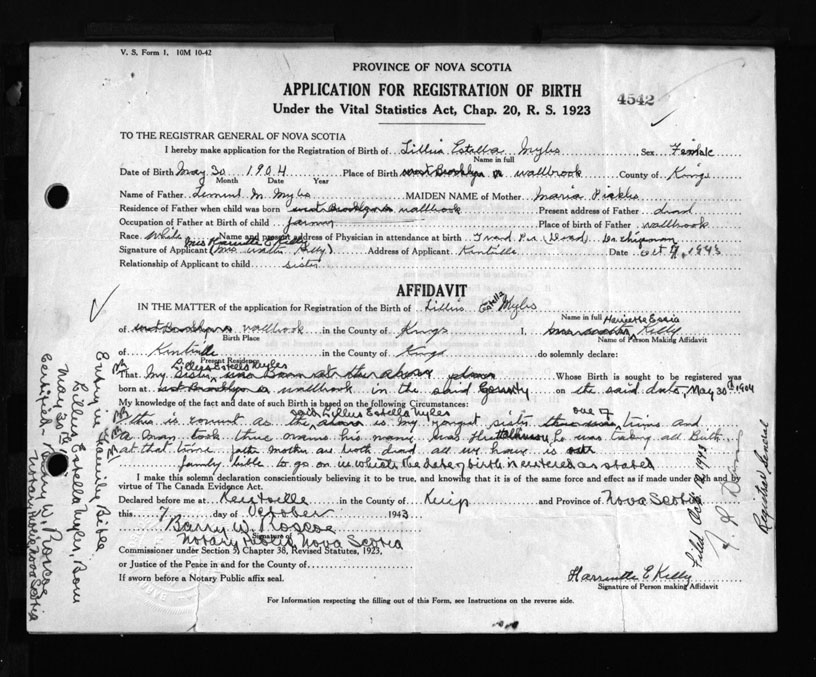 V. S. Form 1. 10M 10-42
PROVINCE OF NOVA SCOTIA
APPLICATION FOR REGISTRATION OF BIRTH
4542
Under the Vital Statistics Act, Chap. 20, R. S. 1923
TO THE REGISTRAR GENERAL OF NOVA SCOTIA
I hereby make application for the Registration of Birth of Lillias Estella Myles Sex Female
Name in full
Date of Birth May 30 1904 Place of Birth west Brooklyn or wallbrook County of Kings
Month Date Year
Name of Father Lemuel M. Myles MAIDEN NAME of Mother Maria Pickles
Residence of Father when child was born west Brooklyn or wallbrook Present address of Father dead
Occupation of Father at Birth of child farming Place of Birth of Father wallbrook
Race White Name and present address of Physician in attendance at birth Grand Pre (Dead) Dr Chipman
Mrs Harriette E Kelly
Signature of Applicant (Mrs walter Kelly) Address of Applicant Kentville Date Oct 7, 1943
Relationship of Applicant to child sister
AFFIDAVIT
IN THE MATTER of the application for Registration of the Birth of Lillias Estella Myles
Name in full Harriette Essie
of west Brooklyn or wallbrook in the County of Kings I, Kelly
Birth Place Name of Person Making Affidavit
of Kentville in the County of Kings do solemnly declare:
Present Residence
Lillias Estella Myles
That My Sister was Born at the above place Whose Birth is sought to be registered was
born at west Brooklyn or wallbrook in the said County on the said date, May 30th 1904
My knowledge of the fact and date of such Birth is based on the following Circumstances:
said Lillias Estella Myles one of
this is correct as the above is my youngest sister twins and
a man took three names his name was he was taking all Birth
at that time father mother are both dead all we have is our
family bible to go on in which the date of birth is entered as stated
I make this solemn declaration conscientiously believing it to be true, and knowing that it is of the same force and effect as if made under oath and by
virtue of The Canada Evidence Act.
Declared before me at Kentville in the County of Kings and Province of Nova Scotia
this 7 day of October 1943
Barry W. Roscoe
Signature of
Notary Public, Nova Scotia
Commissioner under Section 5, Chapter 38, Revised Statutes, 1923,
or Justice of the Peace in and for the County of
If sworn before a Notary Public affix seal.
Harriette E Kelly
Signature of Person making Affidavit
For Information respecting the filling out of this Form, see Instructions on the reverse side.
Entry in Family Bible
Lillias Estella Myles, Born
May 30th 1904
Certified - Barry W. Roscoe
Notary Public Nova Scotia
Filed 1943
Registrar General